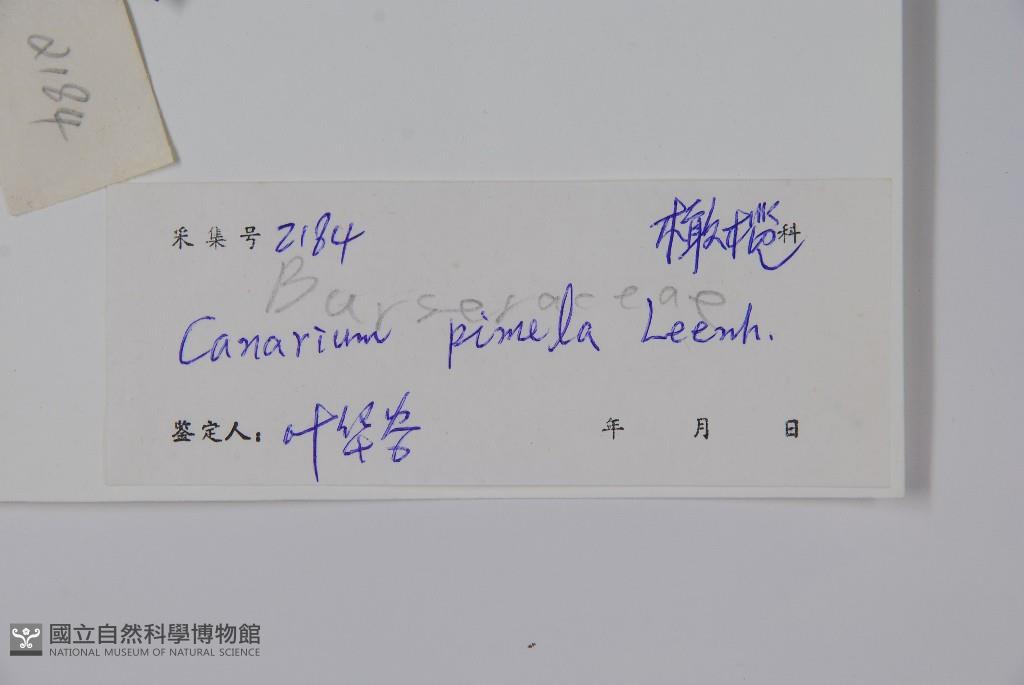 2184
采集号 2184 橄榄科
Burseraceae
Canarium pimela Leenh.
鉴定人: 叶华谷
年 月 日
國立自然科學博物館
NATIONAL MUSEUM OF NATURAL SCIENCE